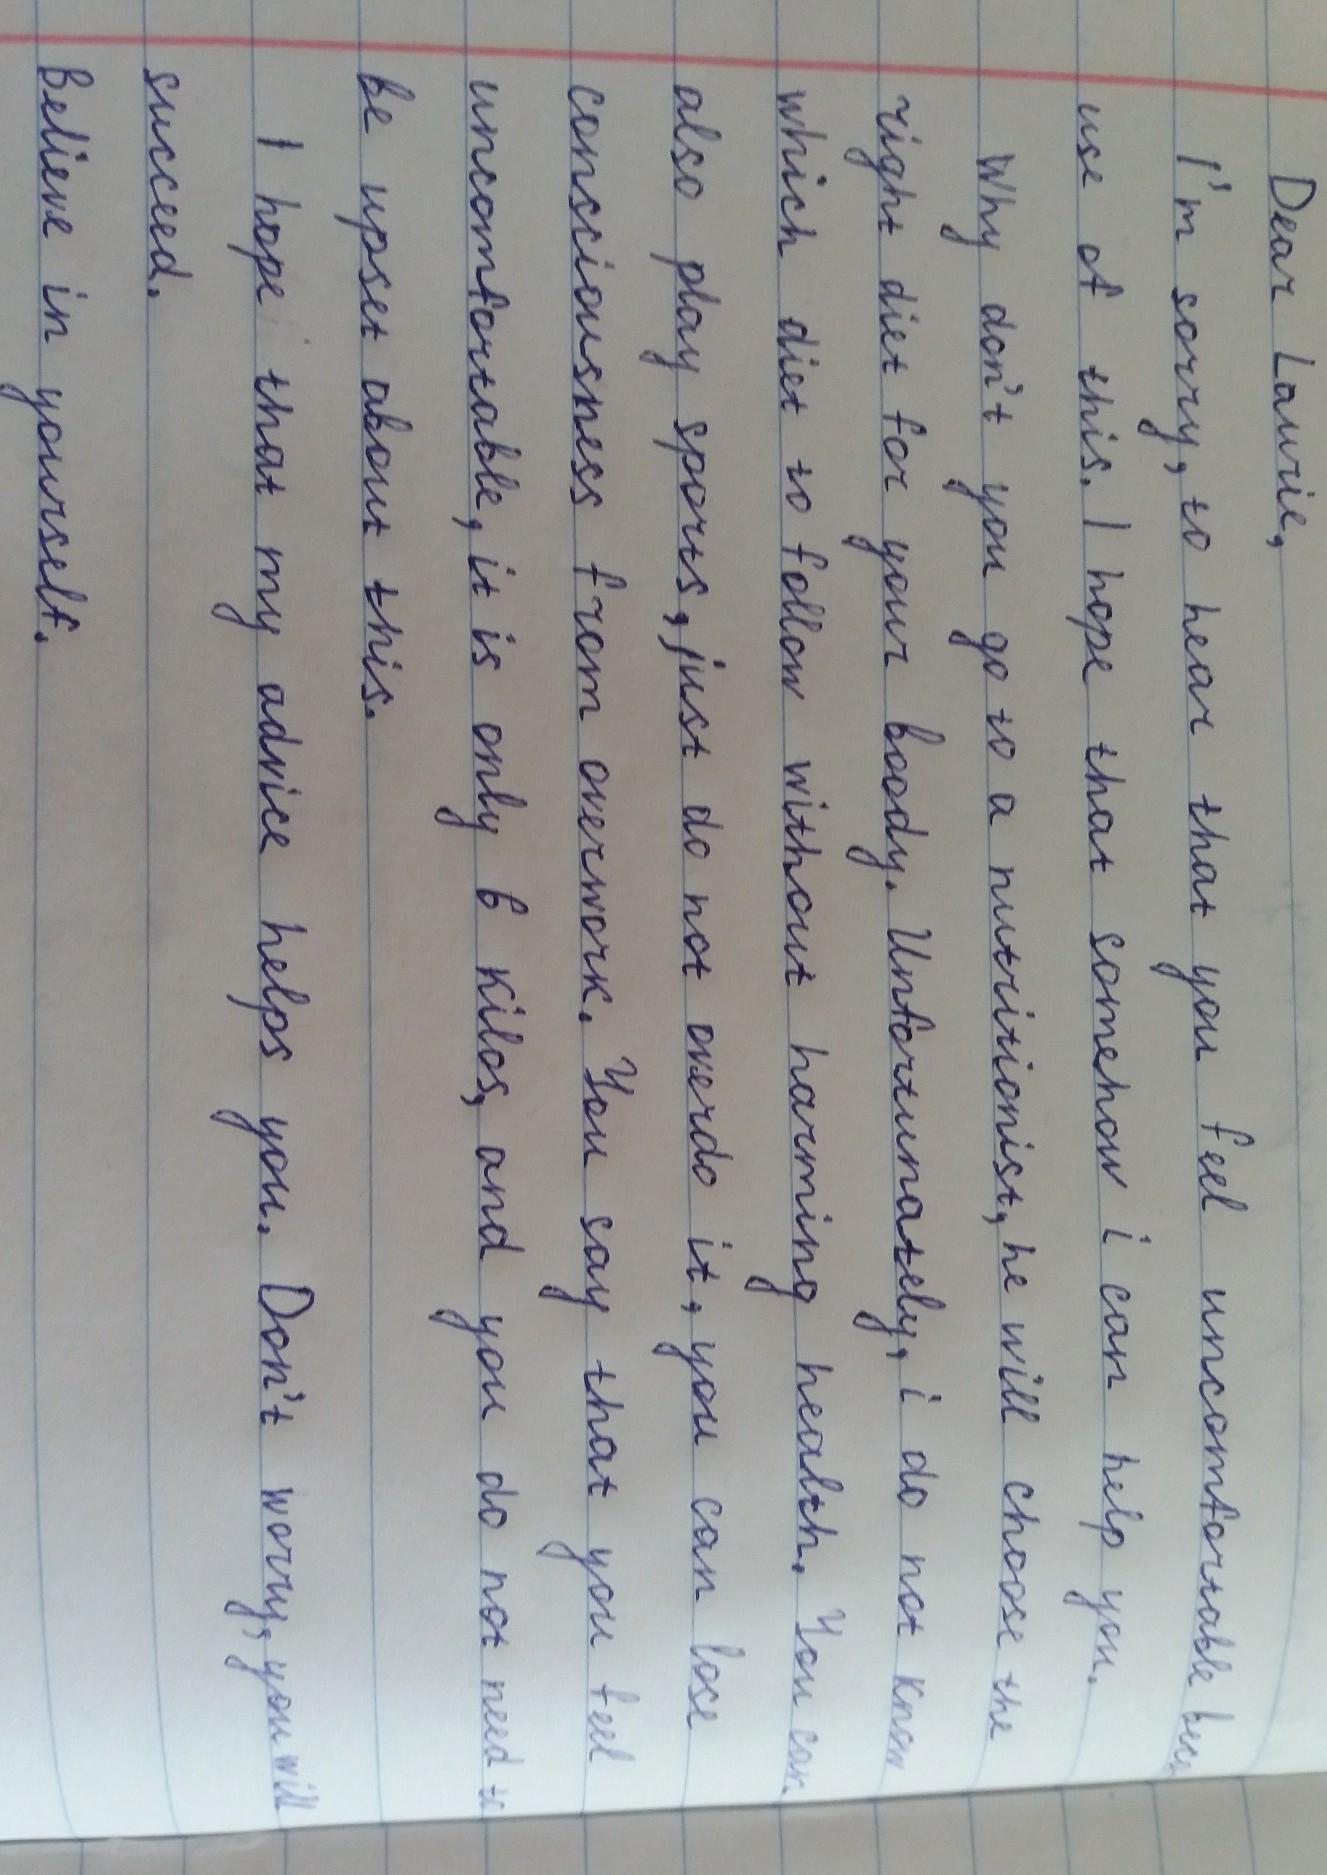 Dear Laurie,
I'm sorry, to hear that you feel uncomfortable beca
use of this. I hope that somehow i can help you.
Why don't you go to a nutritionist, he will choose the
right diet for your boody. Unfortunately, i do not know
which diet to follow without harming health. You can
also play sports, just do not overdo it, you can lose
consciousness from overwork. You say that you feel
uncomfortable, it is only 6 kilos, and you do not need to
be upset about this.
I hope that my advice helps you. Don't worry, you will
succeed.
Believe in yourself.